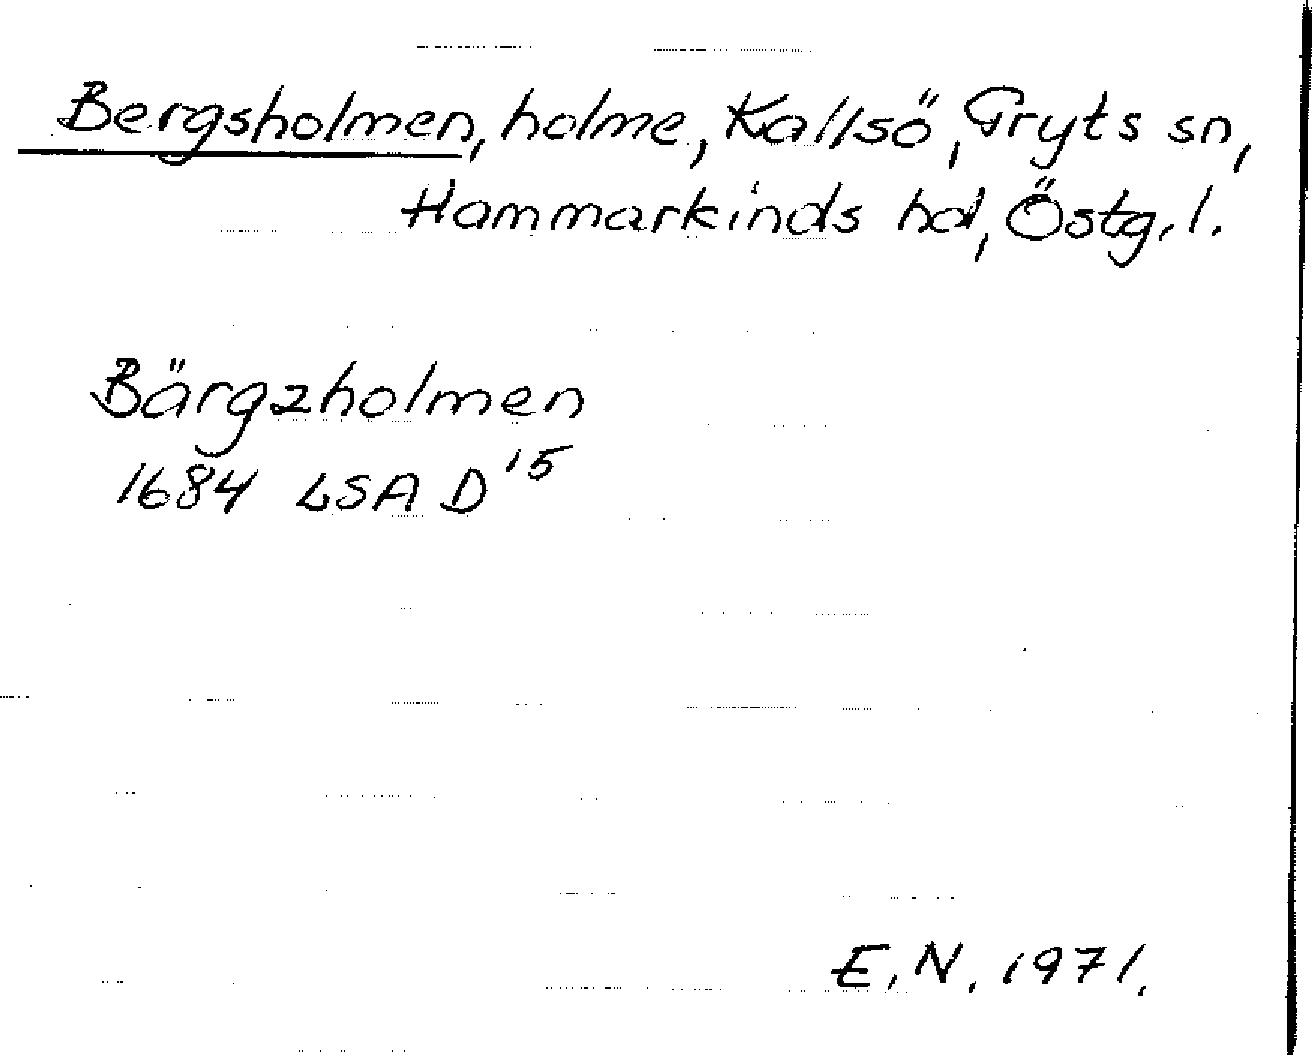 Bergsholmen, holme, Kallsö, Gryts sn,
Hammarkinds hd, Östg. l.
Bärgzholmen
1684 LSA D¹⁵
E. N. 1971.